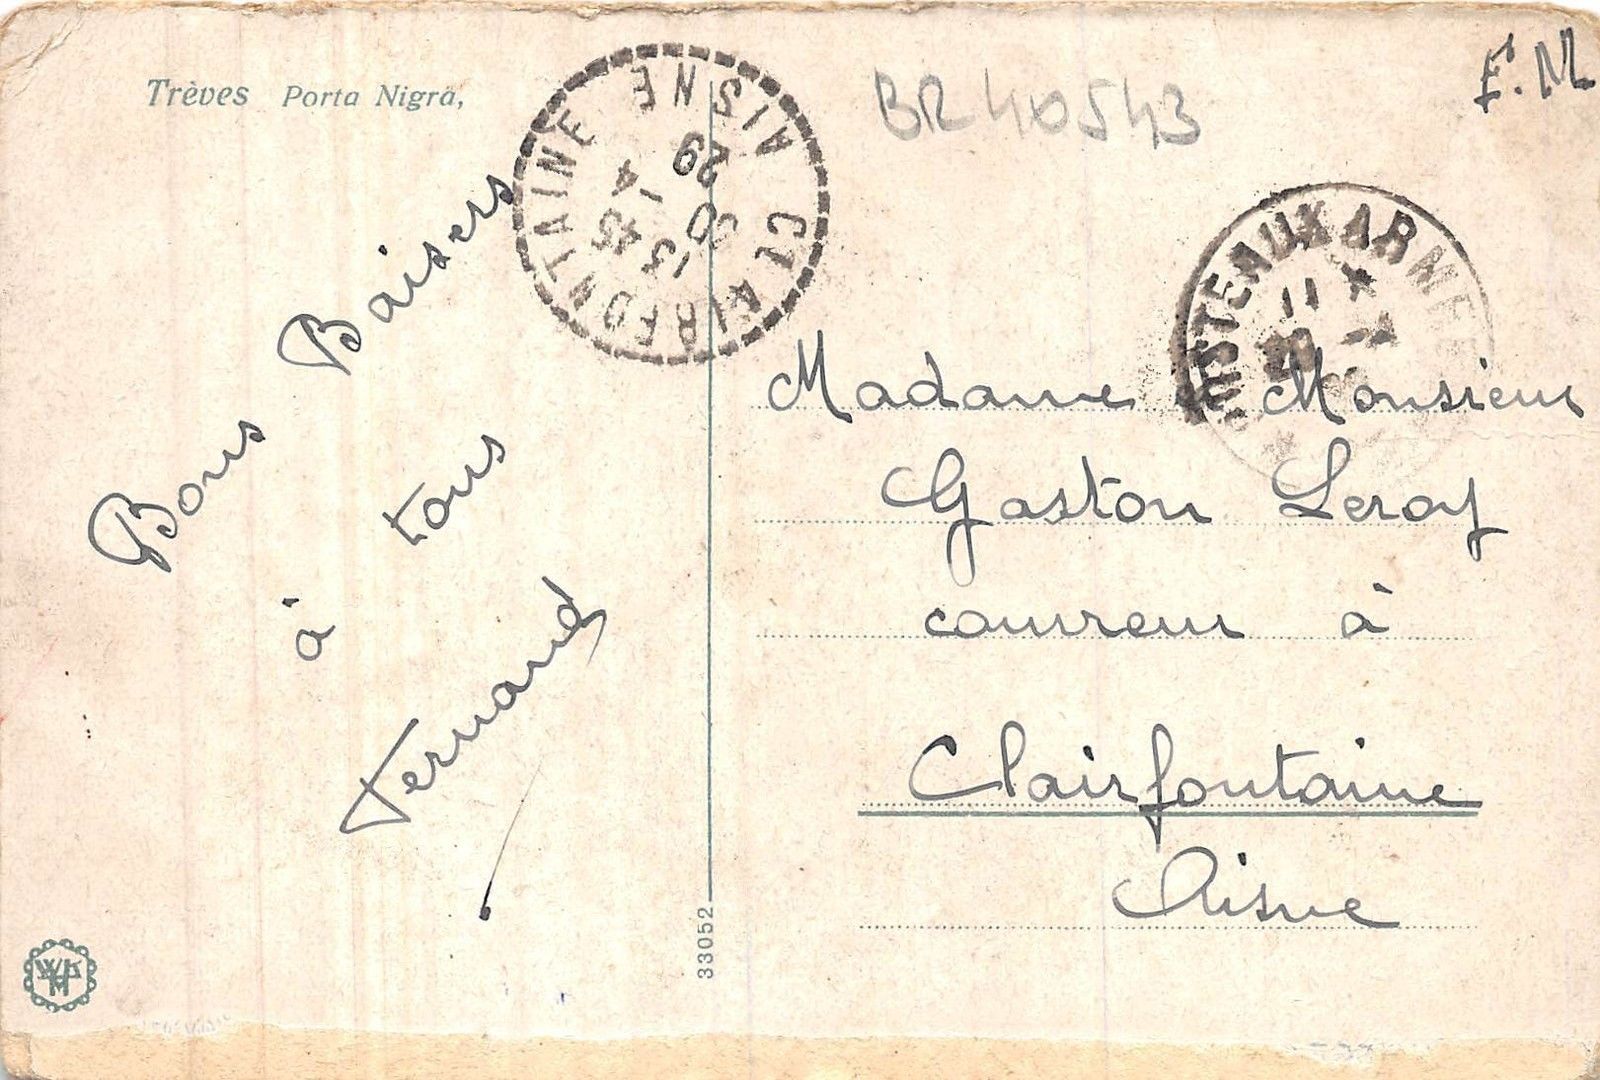 Trèves Porta Nigra,
BR 40543
F.M
CLAIRFONTAINE AISNE
13 45
29 -4
30
POSTES AUX ARMEES
Bons Baisers
à tous
Fernand
Madame Monsieur
Gaston Leroy
couvreur à
Clairfontaine
Aisne
33052